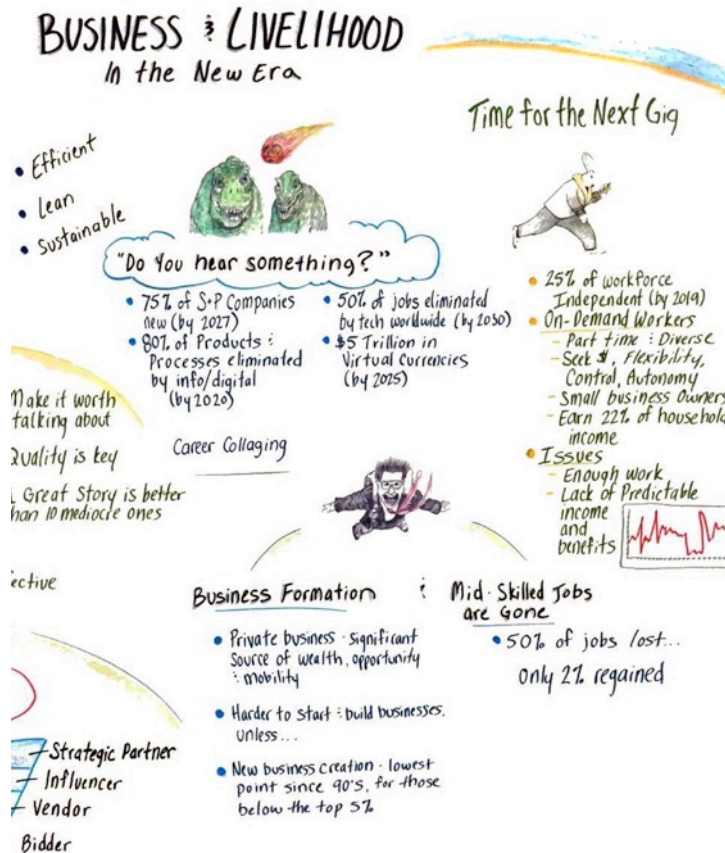 BUSINESS & LIVELIHOOD
In the New Era
• Efficient
• Lean
• Sustainable
"Do You hear something?"
• 75% of S+P Companies
new (by 2027)
• 80% of Products &
Processes eliminated
by info/digital
(by 2020)
• 50% of jobs eliminated
by tech worldwide (by 2030)
• $5 Trillion in
Virtual Currencies
(by 2025)
Time for the Next Gig
• 25% of workforce
Independent (by 2019)
• On-Demand Workers
- Part time & Diverse
- Seek $, Flexibility,
Control, Autonomy
- Small business Owners
- Earn 22% of household
income
• Issues
- Enough work
- Lack of Predictable
income
and
benefits
Make it worth
talking about
Quality is key
Great Story is better
than 10 mediocre ones
ective
Career Collaging
Business Formation &
• Private business - significant
Source of wealth, opportunity
& mobility
• Harder to start & build businesses,
unless...
• New business creation - lowest
point since 90'S, for those
below the top 5%
Mid-Skilled Jobs
are Gone
• 50% of jobs lost...
Only 2% regained
Strategic Partner
Influencer
Vendor
Bidder